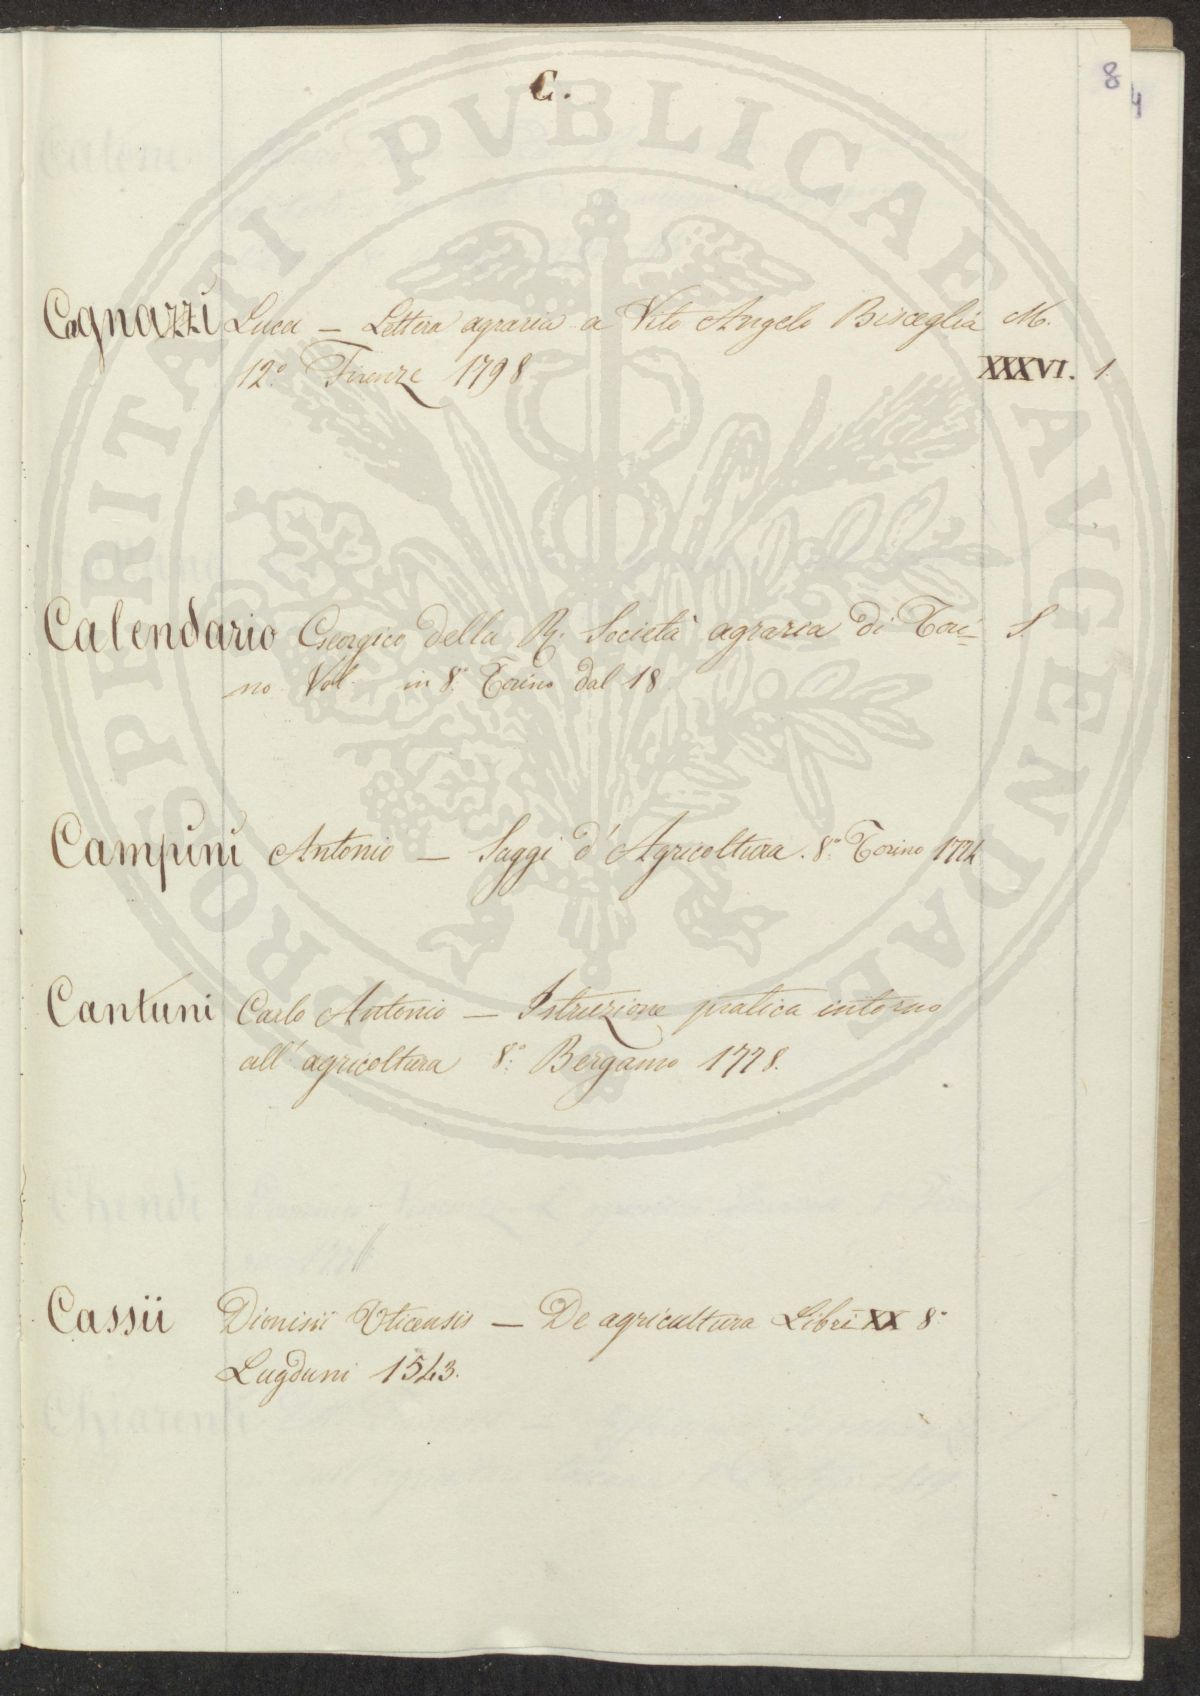 C.
8
4
Cagnazzi Luca — Lettera agraria a Vito Angelo Bisceglia M.
12.º Firenze 1798 XXXVI. 1.
Calendario Georgico della R. Società agraria di Tori= S.
no. Vol. in 8.º Torino dal 18
Campini Antonio — Saggi d'Agricoltura. 8.º Torino 1774
Cantuni Carlo Antonio — Istruzione pratica intorno
all'agricoltura 8.º Bergamo 1778.
Cassii Dionisii Uticensis — De agricultura Libri XX 8.º
Lugduni 1543.
PROSPERITATI PVBLICAE AVGENDAE